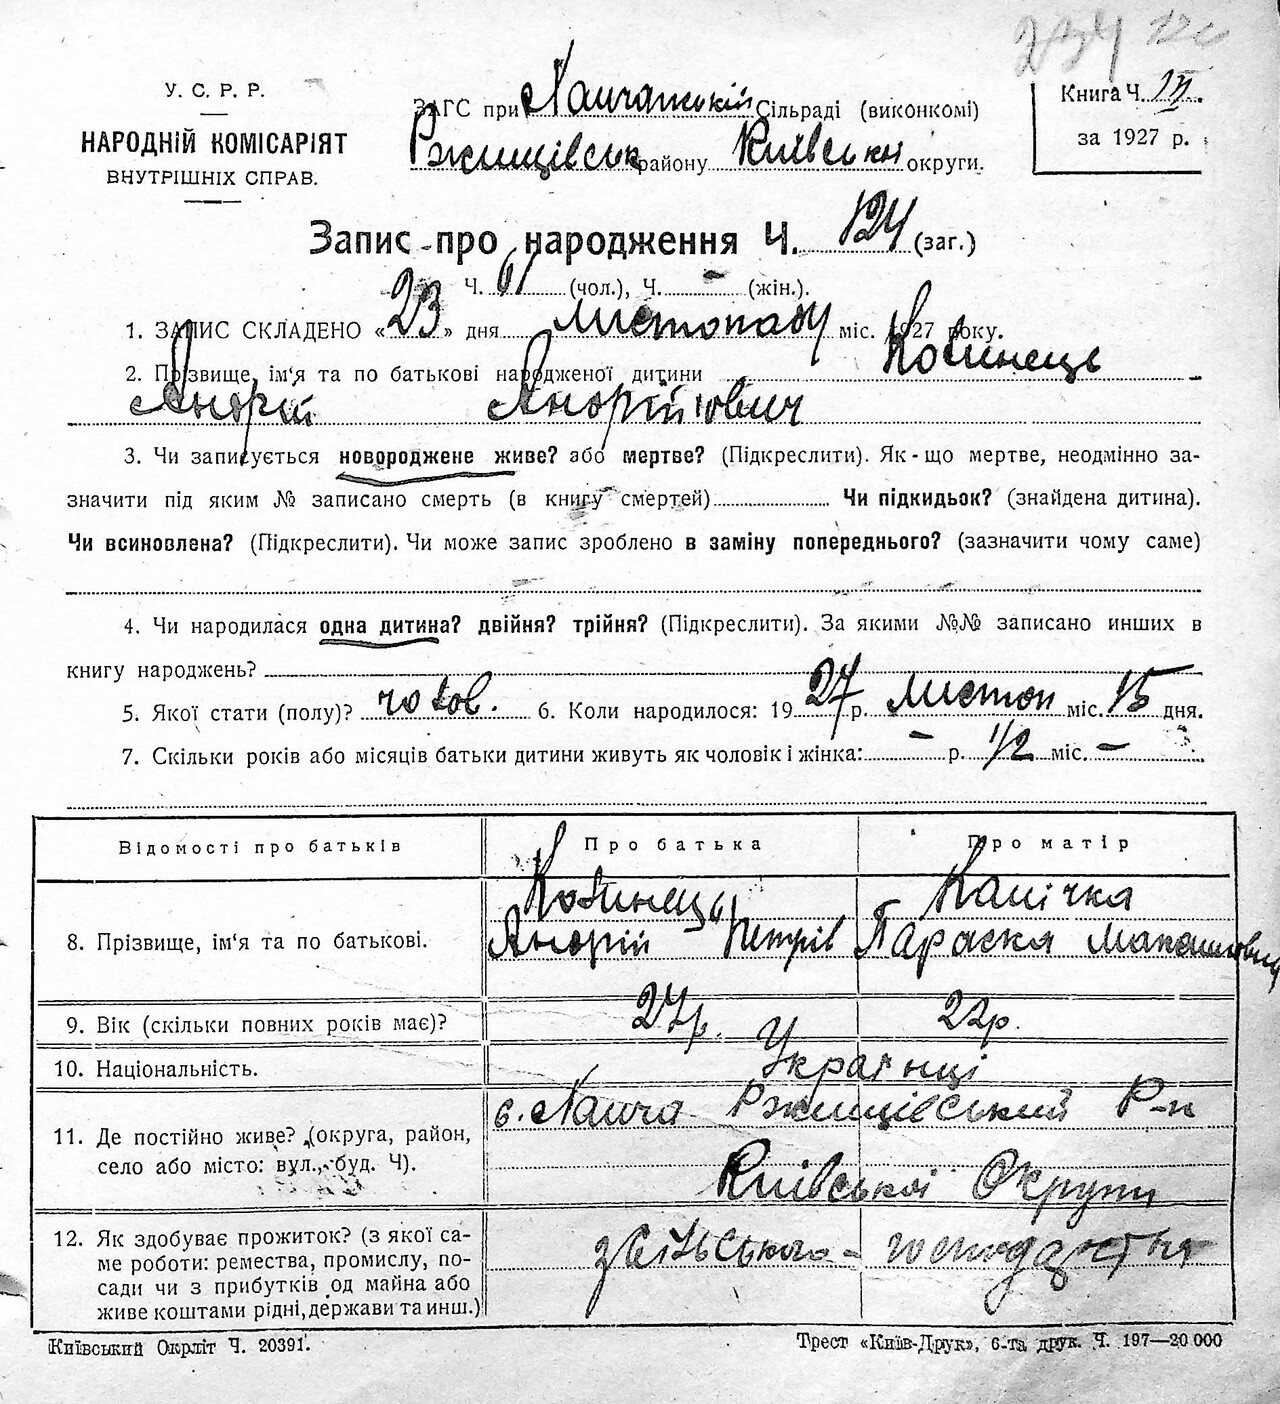 234 12
У. С. Р. Р.
НАРОДНІЙ КОМІСАРІЯТ
ВНУТРІШНІХ СПРАВ.
ЗАГС при Сільраді (виконкомі)
Ржищівськ району Київської округи.
Книга Ч. III.
за 1927 р.
Запис про народження Ч. 124 (заг.)
Ч. 61 (чол.), Ч. – (жін.).
1. ЗАПИС СКЛАДЕНО «23» дня листопаду міс. 1927 року.
2. Прізвище, ім'я та по батькові народженої дитини Ковинець
Андрій Андрійович
3. Чи записується новороджене живе? або мертве? (Підкреслити). Як-що мертве, неодмінно за-
значити під яким № записано смерть (в книгу смертей) Чи підкидьок? (знайдена дитина).
Чи всиновлена? (Підкреслити). Чи може запис зроблено в заміну попереднього? (зазначити чому саме)
4. Чи народилася одна дитина? двійня? трійня? (Підкреслити). За якими №№ записано инших в
книгу народжень?
5. Якої стати (полу)? чолов. 6. Коли народилося: 1927 р. листоп міс. 15 дня.
7. Скільки років або місяців батьки дитини живуть як чоловік і жінка: – р. 1/2 міс. –
Відомості про батьків Про батька Про матір
8. Прізвище, ім'я та по батькові. Ковинець Андрій Петрів Параска
9. Вік (скільки повних років має)? 27р. 22р.
10. Національність. Українці
11. Де постійно живе? (округа, район, с. Ржищівський Р-н
село або місто: вул., буд. Ч). Київської Округи
12. Як здобуває прожиток? (з якої са- з сільського – господарства
ме роботи: ремества, промислу, по-
сади чи з прибутків од майна або
живе коштами рідні, держави та инш.)
Київський Окрліт Ч. 20391. Трест «Київ-Друк», 6-та друк. Ч. 197—20 000